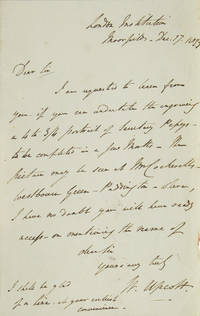 London Institution
Moorfields - Dec. 17.
Dear Sir
I am requested to learn from
you if you can undertake the engraving
a 4to portrait of Secretary Pepys -
to be completed in a few months - The
picture may be seen at Mr Cockerell's
Westbourne Green - Paddington - where,
I have no doubt you will have ready
access - on mentioning the name of
Yours very truly
W. Upcott.
I shall be glad
of a line at your earliest
convenience.